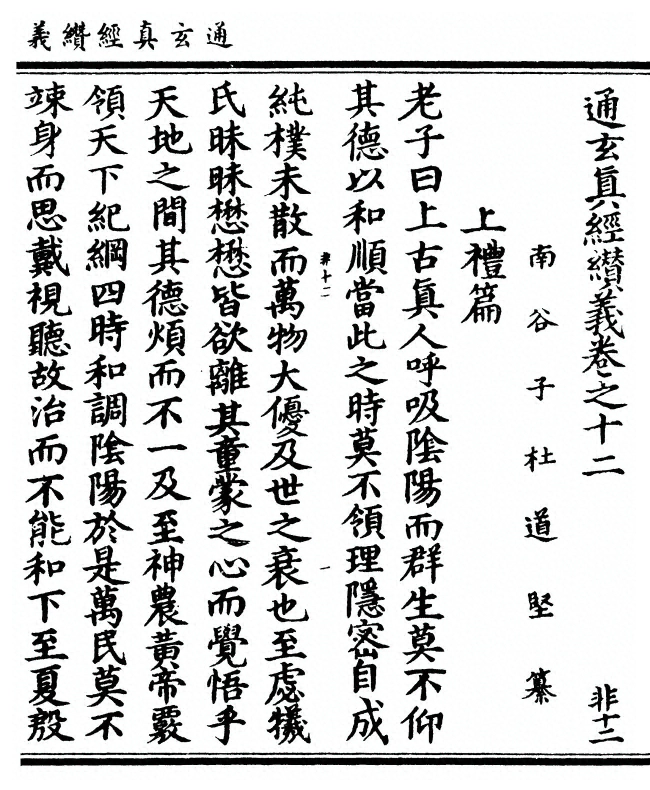 通玄真經纘義
通玄眞經纘義卷之十二　非十二
南谷子杜道堅纂
上禮篇
老子曰上古眞人呼吸陰陽而群生莫不仰
其德以和順當此之時莫不領理隱密自成
純樸未散而萬物大優及世之衰也至虙犧
非十二
一
氏昧昧懋懋皆欲離其童蒙之心而覺悟乎
天地之間其德煩而不一及至神農黃帝覈
領天下紀綱四時和調陰陽於是萬民莫不
竦身而思戴視聽故治而不能和下至夏殷